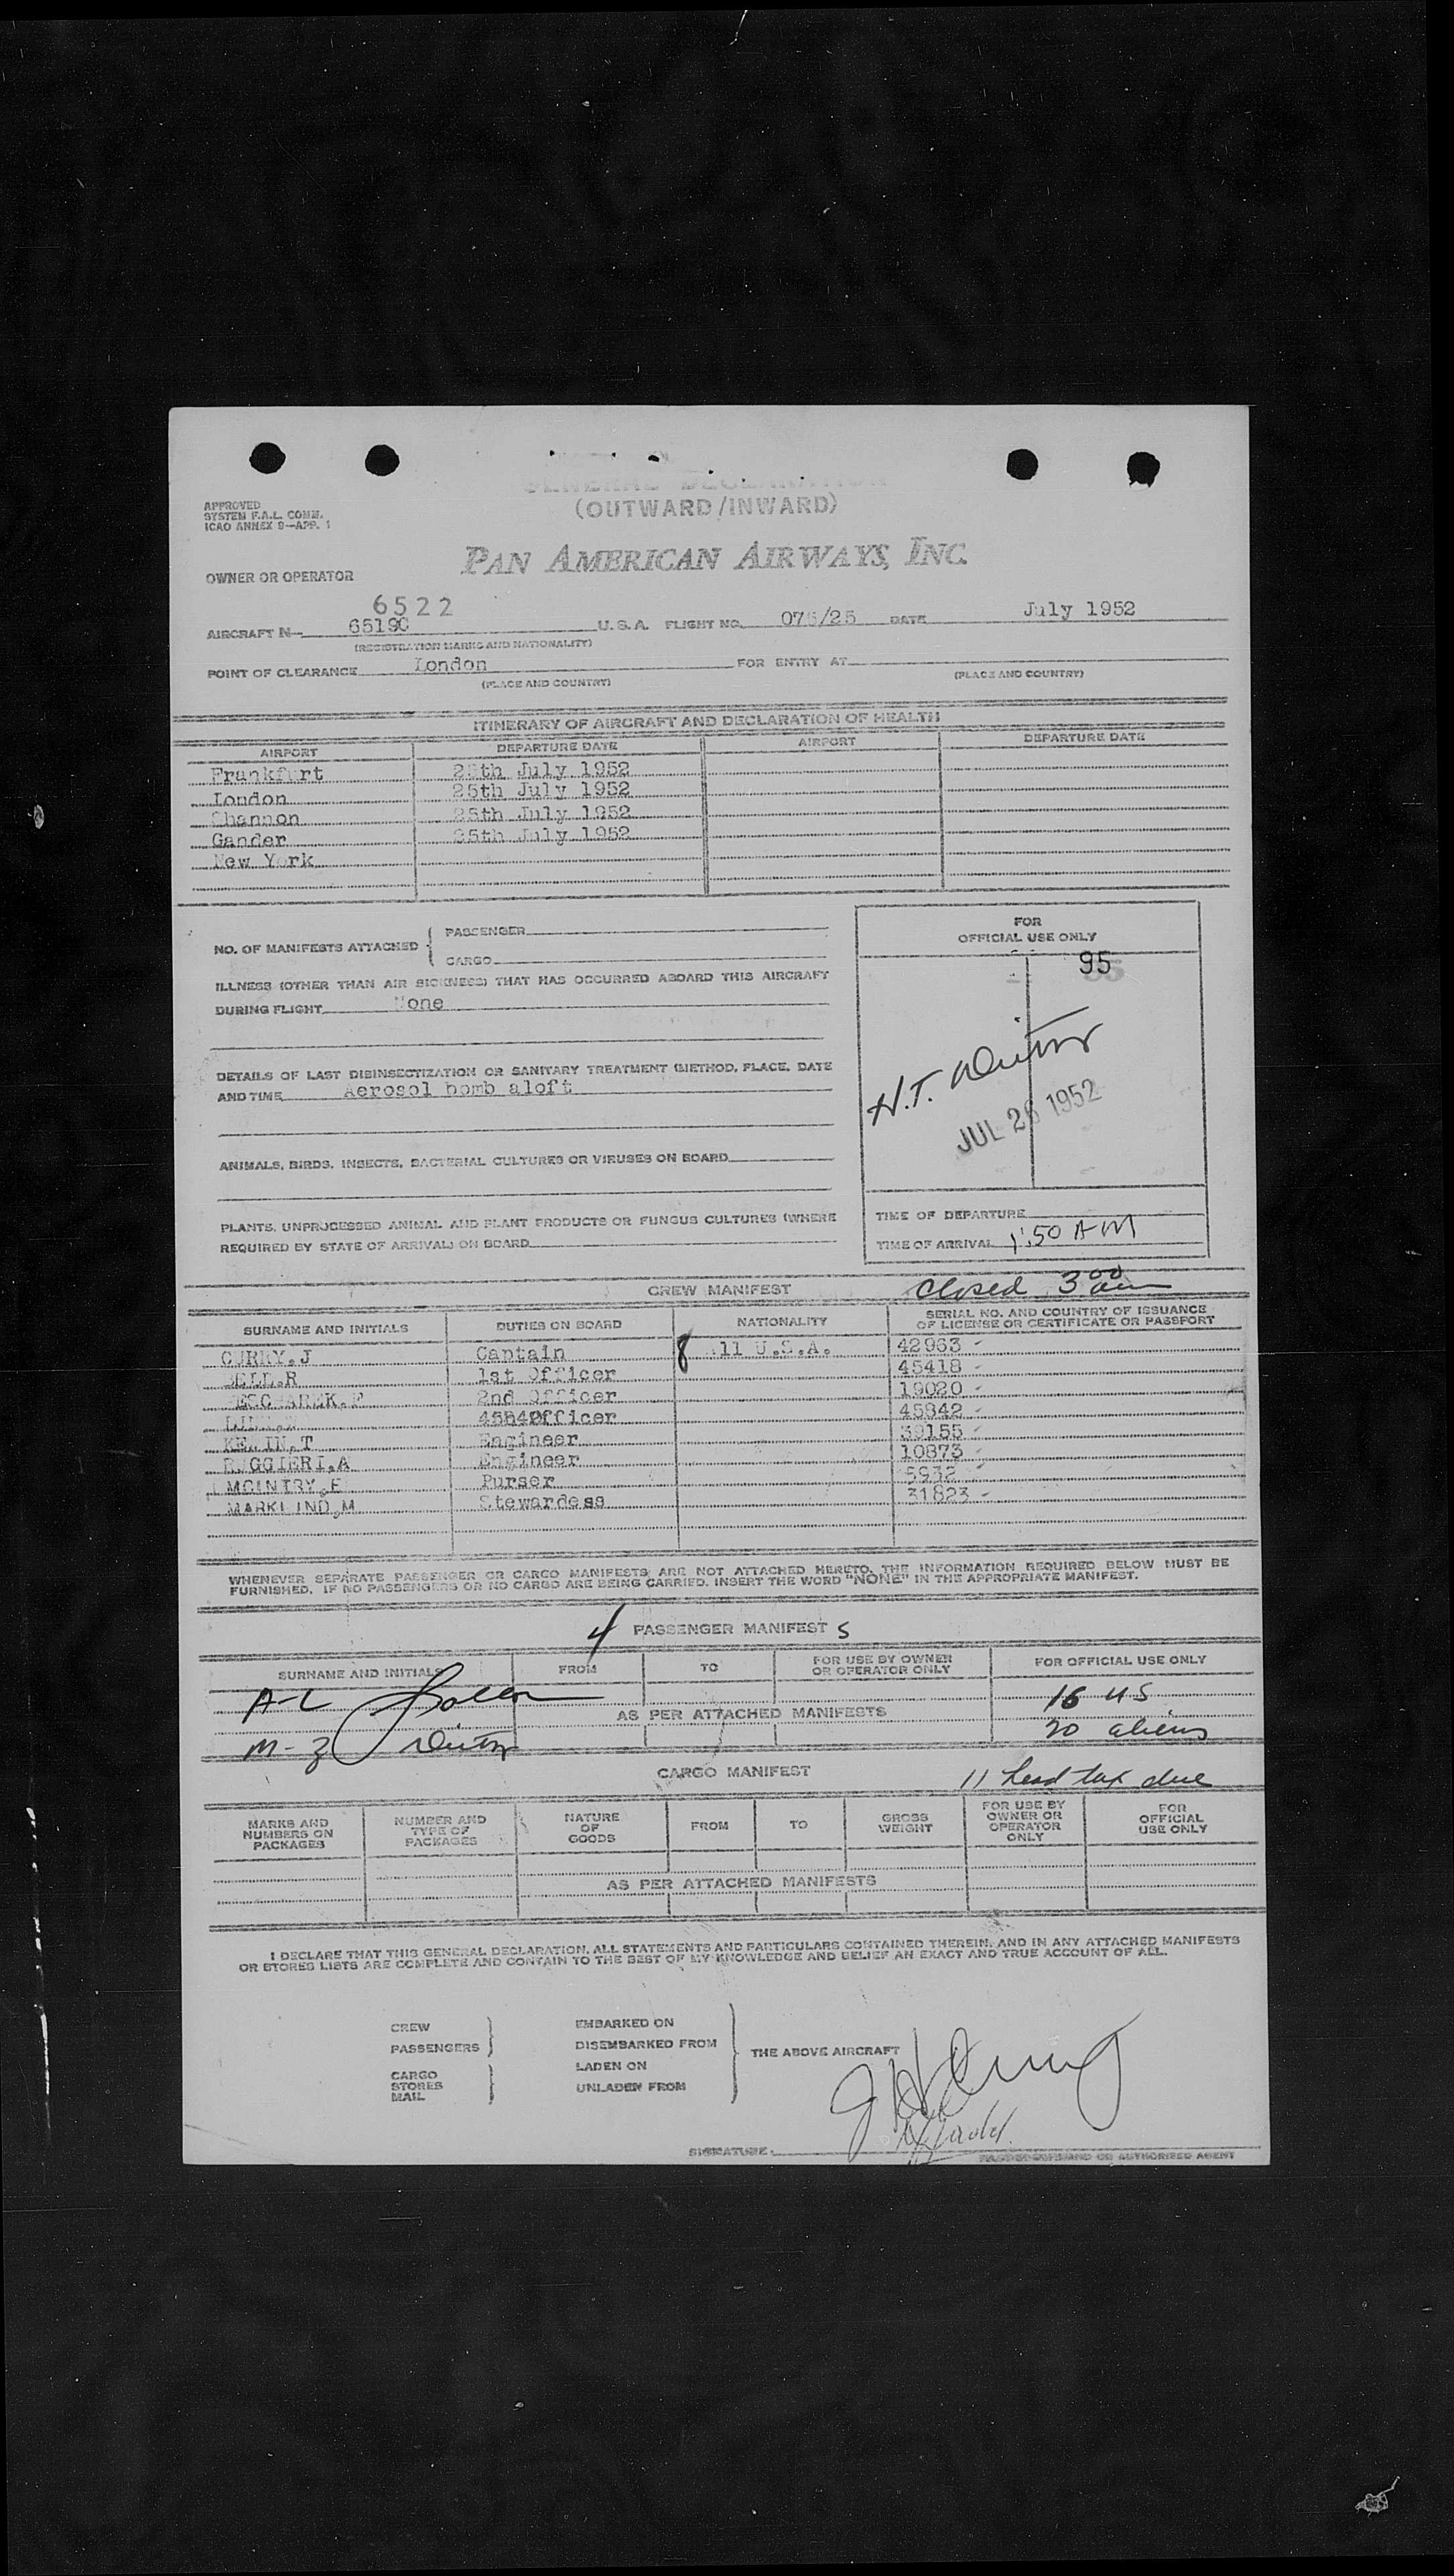 GENERAL DECLARATION
(OUTWARD/INWARD)
APPROVED
SYSTEM F.A.L. COMM.
ICAO ANNEX 9—APP. 1
PAN AMERICAN AIRWAYS, INC.
OWNER OR OPERATOR
6522
AIRCRAFT N— 6519C U.S.A. FLIGHT NO. 07 /25 DATE July 1952
(REGISTRATION MARKS AND NATIONALITY)
POINT OF CLEARANCE London FOR ENTRY AT
(PLACE AND COUNTRY) (PLACE AND COUNTRY)
ITINERARY OF AIRCRAFT AND DECLARATION OF HEALTH
AIRPORT DEPARTURE DATE AIRPORT DEPARTURE DATE
Frankfurt 25th July 1952
London 25th July 1952
Shannon 25th July 1952
Gander 25th July 1952
New York
NO. OF MANIFESTS ATTACHED
PASSENGER
CARGO
ILLNESS (OTHER THAN AIR SICKNESS) THAT HAS OCCURRED ABOARD THIS AIRCRAFT
DURING FLIGHT None
DETAILS OF LAST DISINSECTIZATION OR SANITARY TREATMENT (METHOD, PLACE, DATE
AND TIME Aerosol bomb aloft
ANIMALS, BIRDS, INSECTS, BACTERIAL CULTURES OR VIRUSES ON BOARD
PLANTS, UNPROCESSED ANIMAL AND PLANT PRODUCTS OR FUNGUS CULTURES (WHERE
REQUIRED BY STATE OF ARRIVAL) ON BOARD
FOR
OFFICIAL USE ONLY
95
H.T.
JUL 26 1952
TIME OF DEPARTURE
TIME OF ARRIVAL 1:50 AM
CREW MANIFEST closed 3 00 am
SURNAME AND INITIALS DUTIES ON BOARD NATIONALITY SERIAL NO. AND COUNTRY OF ISSUANCE
OF LICENSE OR CERTIFICATE OR PASSPORT
CURRY.J Captain 8 All U.S.A. 42963
BELL.R 1st Officer 45418
2nd Officer 19020
Officer 45842
T Engineer 39155
RUGGIERI.A Engineer 10873
MCINTRY.F Purser 5932
MARKLIND.M Stewardess 31823
WHENEVER SEPARATE PASSENGER OR CARGO MANIFESTS ARE NOT ATTACHED HERETO, THE INFORMATION REQUIRED BELOW MUST BE
FURNISHED. IF NO PASSENGERS OR NO CARGO ARE BEING CARRIED, INSERT THE WORD "NONE" IN THE APPROPRIATE MANIFEST.
4 PASSENGER MANIFEST s
SURNAME AND INITIALS FROM TO FOR USE BY OWNER
OR OPERATOR ONLY FOR OFFICIAL USE ONLY
A-L 16 US
AS PER ATTACHED MANIFESTS
M-Z 20 aliens
CARGO MANIFEST 11 head tax due
MARKS AND
NUMBERS ON
PACKAGES
NUMBER AND
TYPE OF
PACKAGES
NATURE
OF
GOODS
FROM
TO
GROSS
WEIGHT
FOR USE BY
OWNER OR
OPERATOR
ONLY
FOR
OFFICIAL
USE ONLY
AS PER ATTACHED MANIFESTS
I DECLARE THAT THIS GENERAL DECLARATION, ALL STATEMENTS AND PARTICULARS CONTAINED THEREIN, AND IN ANY ATTACHED MANIFESTS
OR STORES LISTS ARE COMPLETE AND CONTAIN TO THE BEST OF MY KNOWLEDGE AND BELIEF AN EXACT AND TRUE ACCOUNT OF ALL.
CREW
PASSENGERS
CARGO
STORES
MAIL
EMBARKED ON
DISEMBARKED FROM
LADEN ON
UNLADEN FROM
THE ABOVE AIRCRAFT
SIGNATURE
OR AUTHORIZED AGENT